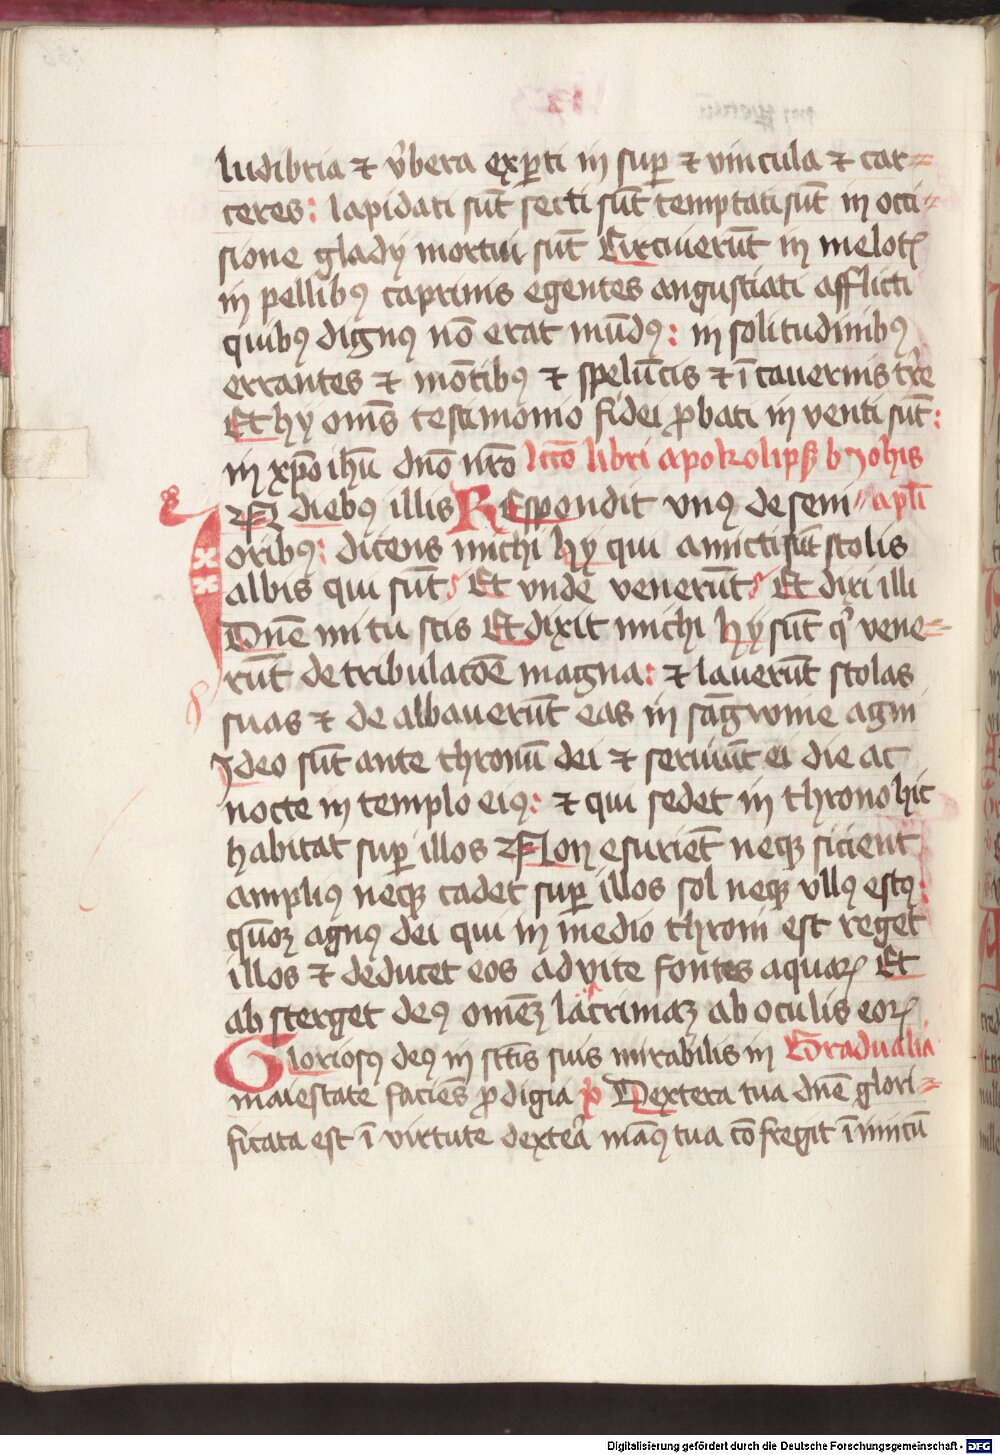 ludibria ⁊ v̓bera exp̱ti in sup̱ ⁊ vincula ⁊ car⸗
ceres: lapidati su̅t secti su̅t temptati su̅t in occi⸗
sione glady mortui su̅t Circuieru̅t in melotꝭ
in pellibꝰ caprinis egentes angustiati afflicti
quibꝰ dignꝰ no̅ erat mu̅dꝰ: in solitudinibꝰ
errantes ⁊ mo̅tibꝰ ⁊ spelu̅cis ⁊ i̅ cauernis t̓re
Et hy om̅s testimonio fidei ꝓbati in venti su̅t:
in xp̅o ihu̅ dn̅o nr̅o lc̅co̅ libri apokolipsꝭ b Johis
apl̅i
IN diebꝰ illis REspondit vnꝰ de seni⸗
oribꝰ: dicens michi hy qui amicti su̅t stolis
albis qui su̅t Et vnde veneru̅t Et dixi illi
Dn̅e mi tu scis Et dixit michi hy su̅t q̓ vene⸗
ru̅t de tribulaco̅e magna: ⁊ laueru̅t stolas
suas ⁊ de albaueru̅t eas in sa̅gwine agni
Ideo su̅t ante thronu̅ dei ⁊ seruiu̅t ei die ac
nocte in templo eiꝰ: ⁊ qui sedet in throno hic
habitat sup̱ illos Non esurie̅t neqꝫ sicient
ampliꝰ neqꝫ cadet sup̱ illos sol neqꝫ vllꝰ estꝰ:
qm̅oꝝ agnꝰ dei qui in medio throni est reget
illos ⁊ deducet eos ad vite fontes aquaꝝ Et
ab sterget deꝰ ome̅ꝫ lacrimaꝫ ab oculis eoꝝ
Gloriosꝰ deꝰ in sc̅tis suis mirabilis in Gradualia
maiestate facie̅s ꝓdigia ꝟ Dextera tua dn̅e glori⸗
ficata est i̅ virtute dext̓ea manꝰ tua co̅fregit i̅imicu̅
Digitalisierung gefördert durch die Deutsche Forschungsgemeinschaft - DFG